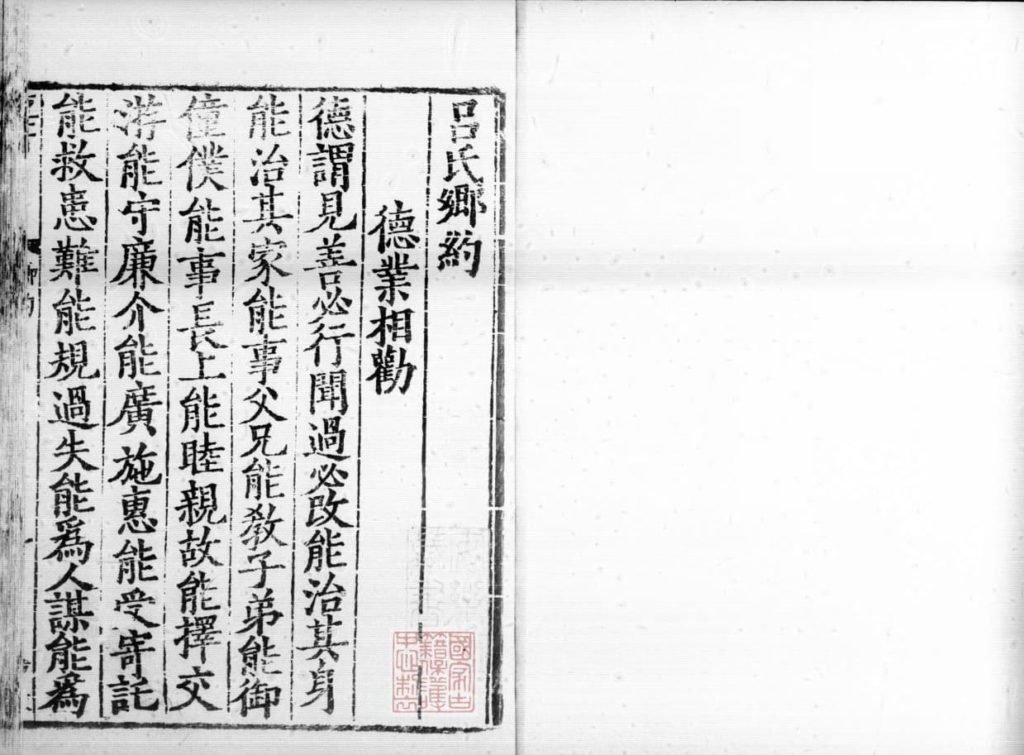 吕氏鄉約
德業相勸
德謂見善必行聞過必改能治其身
能治其家能事父兄能教子弟能御
僮僕能事長上能睦親故能擇交
游能守廉介能廣施惠能受寄託
能救患難能規過失能爲人謀能爲